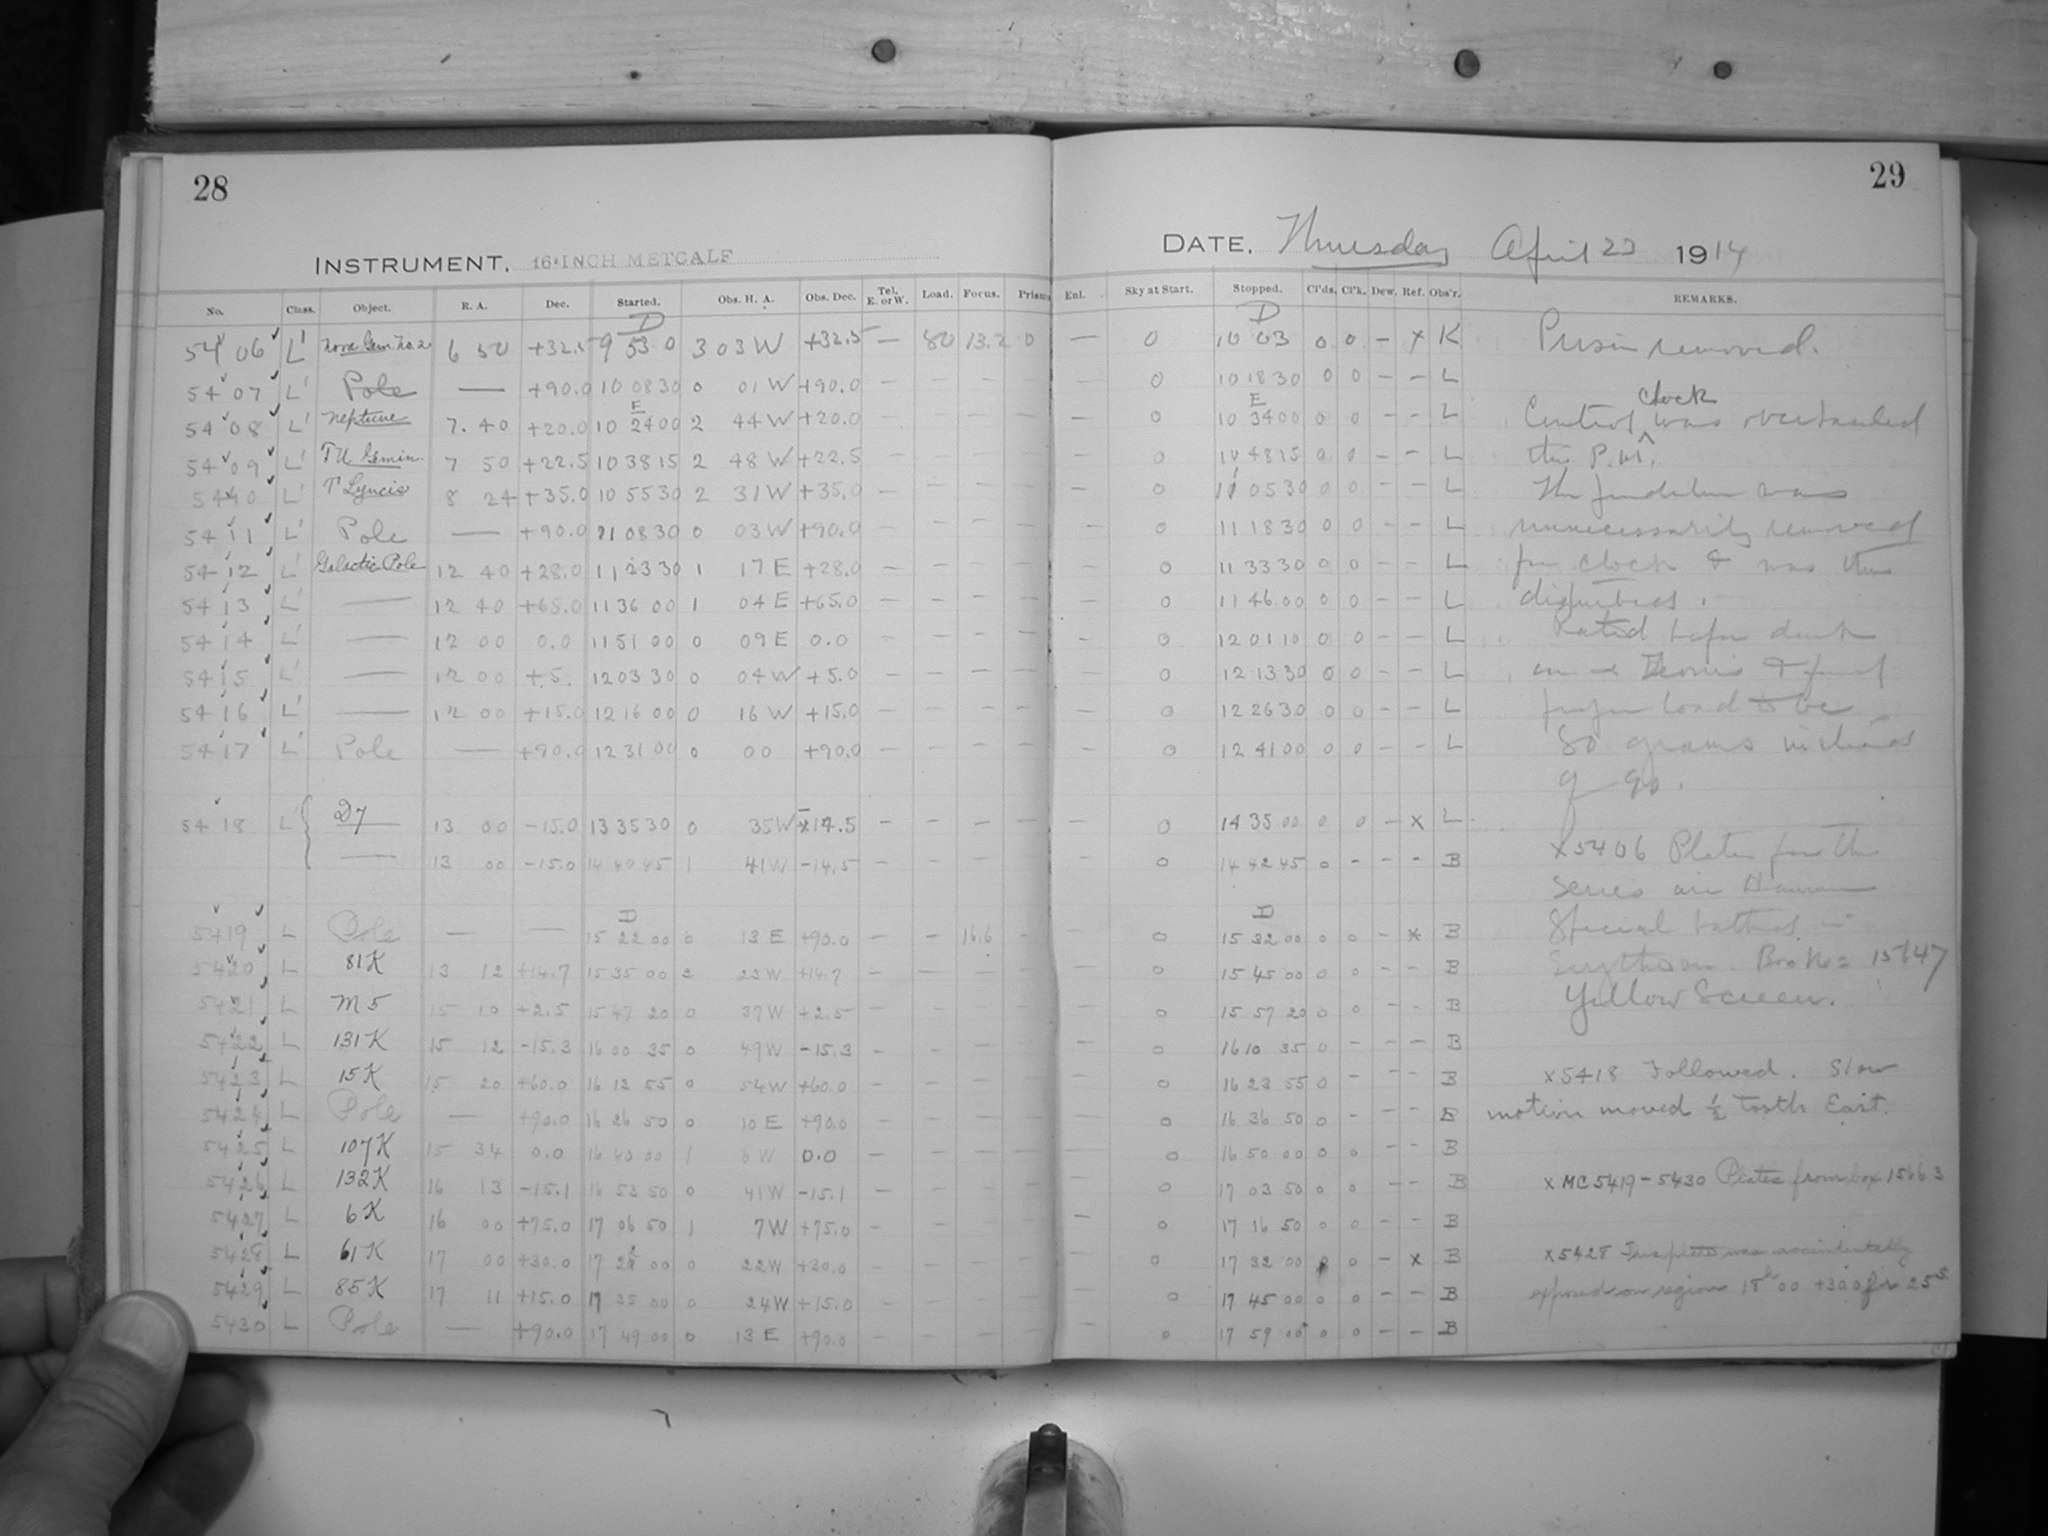 28
29
INSTRUMENT, 16-INCH METCALF
DATE, Thursday April 23 1914
No. Class. Object. R. A. Dec. Started. Obs. H. A. Obs. Dec. Tel. E. or W. Load. Focus. Prism Enl. Sky at Start. Stopped. Cl'ds. Cl'k. Dew. Ref. Obs'r. REMARKS.
D D
5406 L' Nova Gem. No. 2 6 50 +32.5 9 53 0 3 03 W +32.5 — 80 13.2 0 — 0 10 03 0 0 – x K Prism removed.
5407 L' Pole — +90.0 10 08 30 0 01 W +90.0 — — — — — 0 10 18 30 0 0 – – L
E E clock
5408 L' Neptune 7. 40 +20.0 10 24 00 2 44 W +20.0 — — — — — 0 10 34 00 0 0 – – L Control was overhauled
5409 L' TU Gemin. 7 50 +22.5 10 38 15 2 48 W +22.5 — — — — — 0 10 48 15 0 0 – – L this P.M.
5410 L' T Lyncis 8 24 +35.0 10 55 30 2 31 W +35.0 — — — — — 0 11 05 30 0 0 – – L The pendulum was
5411 L' Pole — +90.0 11 08 30 0 03 W +90.0 — — — — — 0 11 18 30 0 0 – – L unnecessarily removed
5412 L' Galactic Pole 12 40 +28.0 11 23 30 1 17 E +28.0 — — — — — 0 11 33 30 0 0 – – L for clock & was thus
5413 L' — 12 40 +65.0 11 36 00 1 04 E +65.0 — — — — — 0 11 46 00 0 0 – – L disturbed.
5414 L' — 12 00 0.0 11 51 00 0 09 E 0.0 — — — — — 0 12 01 10 0 0 – – L Rated before dark
5415 L' — 12 00 +5. 12 03 30 0 04 W +5.0 — — — — — 0 12 13 30 0 0 – – L on α Leonis & found
5416 L' — 12 00 +15.0 12 16 00 0 16 W +15.0 — — — — — 0 12 26 30 0 0 – – L proper load to be
5417 L' Pole — +90.0 12 31 00 0 00 +90.0 — — — — — 0 12 41 00 0 0 – – L 80 grams instead
of 90.
5418 L' D7 13 00 -15.0 13 35 30 0 35 W -14.5 — — — — — 0 14 35 00 0 0 – x L
— 13 00 -15.0 14 40 45 1 41 W -14.5 — — — — — 0 14 42 45 0 – – – B x5406 Plates for this
series are Hammer
D D
5419 L Pole — — 15 22 00 0 13 E +90.0 — — 16.6 – — 0 15 32 00 0 0 – x B Special bathed in
5420 L 81K 13 12 +14.7 15 35 00 2 23 W +14.7 — — — — — 0 15 45 00 0 0 – – B Erythrosin. Box No = 15647
5421 L M5 15 10 +2.5 15 47 20 0 37 W +2.5 — — — — — 0 15 57 20 0 0 – – B Yellow Screen.
5422 L 131K 15 12 -15.3 16 00 35 0 49 W -15.3 — — — — — 0 16 10 35 0 – – – B
5423 L 15K 15 20 +60.0 16 13 55 0 54 W +60.0 — — — — — 0 16 23 55 0 – – – B x5418 Followed. Slow
5424 L Pole — +90.0 16 26 50 0 10 E +90.0 — — — — — 0 16 36 50 0 – – – B motion moved 1/2 tooth East.
5425 L 107K 15 34 0.0 16 40 00 1 6 W 0.0 — — — — — 0 16 50 00 0 0 – – B
5426 L 132K 16 13 -15.1 16 53 50 0 41 W -15.1 — — — — — 0 17 03 50 0 0 – – B x MC5419-5430 Plates from box 15663
5427 L 6K 16 00 +75.0 17 06 50 1 7 W +75.0 — — — — — 0 17 16 50 0 0 – – B
5428 L 61K 17 00 +30.0 17 22 00 0 22 W +30.0 — — — — — 0 17 32 00 0 0 – x B x5428 This plate was accidentally
5429 L 85K 17 11 +15.0 17 35 00 0 24 W +15.0 — — — — — 0 17 45 00 0 0 – – B exposed on region 18h 00 +30.0 for 25s.
5430 L Pole — +90.0 17 49 00 0 13 E +90.0 — — — — — 0 17 59 00 0 0 – – B